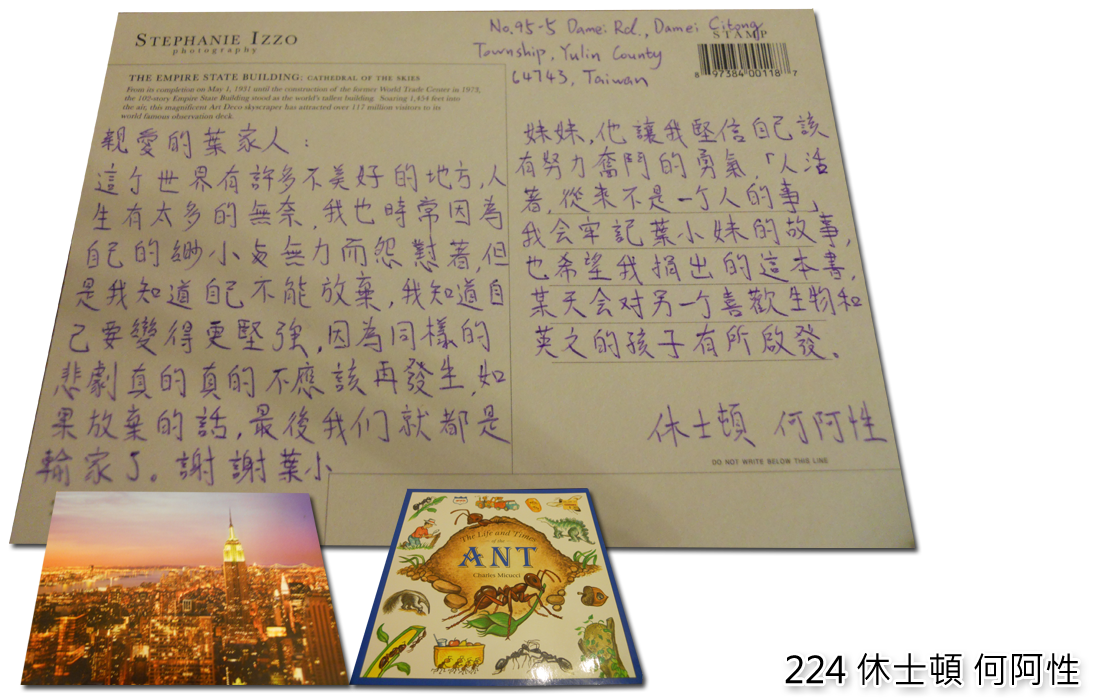 STEPHANIE IZZO
photography
THE EMPIRE STATE BUILDING: CATHEDRAL OF THE SKIES
From its completion on May 1, 1931 until the construction of the former World Trade Center in 1973,
the 102-story Empire State Building stood as the world's tallest building. Soaring 1,454 feet into
the air, this magnificent Art Deco skyscraper has attracted over 117 million visitors to its
world famous observation deck.
親愛的葉家人:
這个世界有許多不美好的地方,人
生有太多的無奈,我也時常因為
自己的緲小与無力而怨懟著,但
是我知道自己不能放棄,我知道自
己要變得更堅強,因為同樣的
悲劇真的真的不應該再發生,如
果放棄的話,最後我们就都是
輸家了。謝謝葉小
No.95-5 Damei Rd., Damei Citong
Township, Yulin County
64743, Taiwan
STAMP
8 97384 00118 7
妹妹,他讓我堅信自己該
有努力奮鬥的勇氣,「人活
著,從來不是一个人的事」
我会牢記葉小妹的故事,
也希望我捐出的這本書,
某天会对另一个喜歡生物和
英文的孩子有所啟發.
休士頓 何阿性
DO NOT WRITE BELOW THIS LINE
The Life and Times
of the
ANT
Charles Micucci
224 休士頓 何阿性